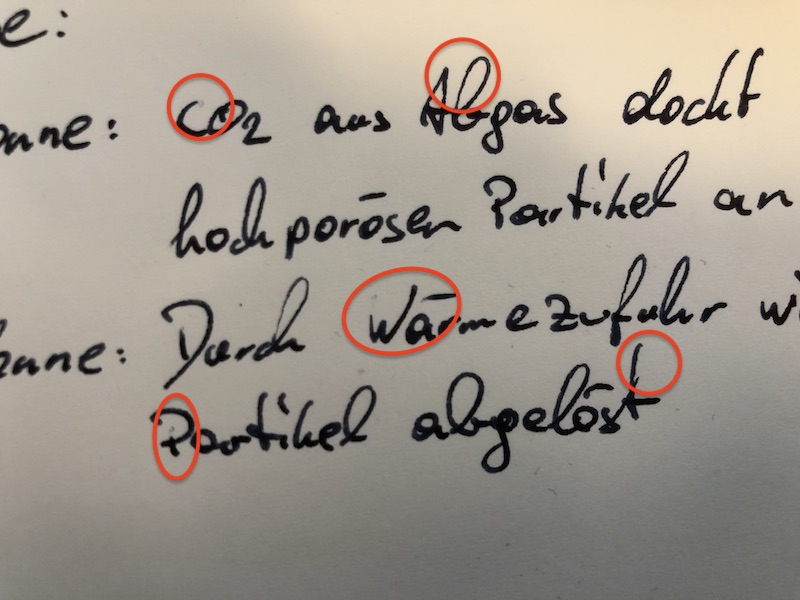 CO2 aus Abgas dockt
hochporösen Partikel an
Durch Wärmezufuhr
Partikel abgelöst